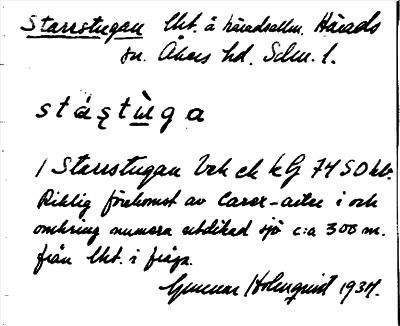 Starrstugan lht. å häradsallm. Härads
sn. Åkers hd. Sdm. l.
stástùga
1 Starrstugan lht ek kG 7450 hb.
Riklig förekomst av Carex-arter i och
omkring numera utdikad sjö c:a 300 m.
från lht. i fråga.
Gunnar Holmquist 1937.